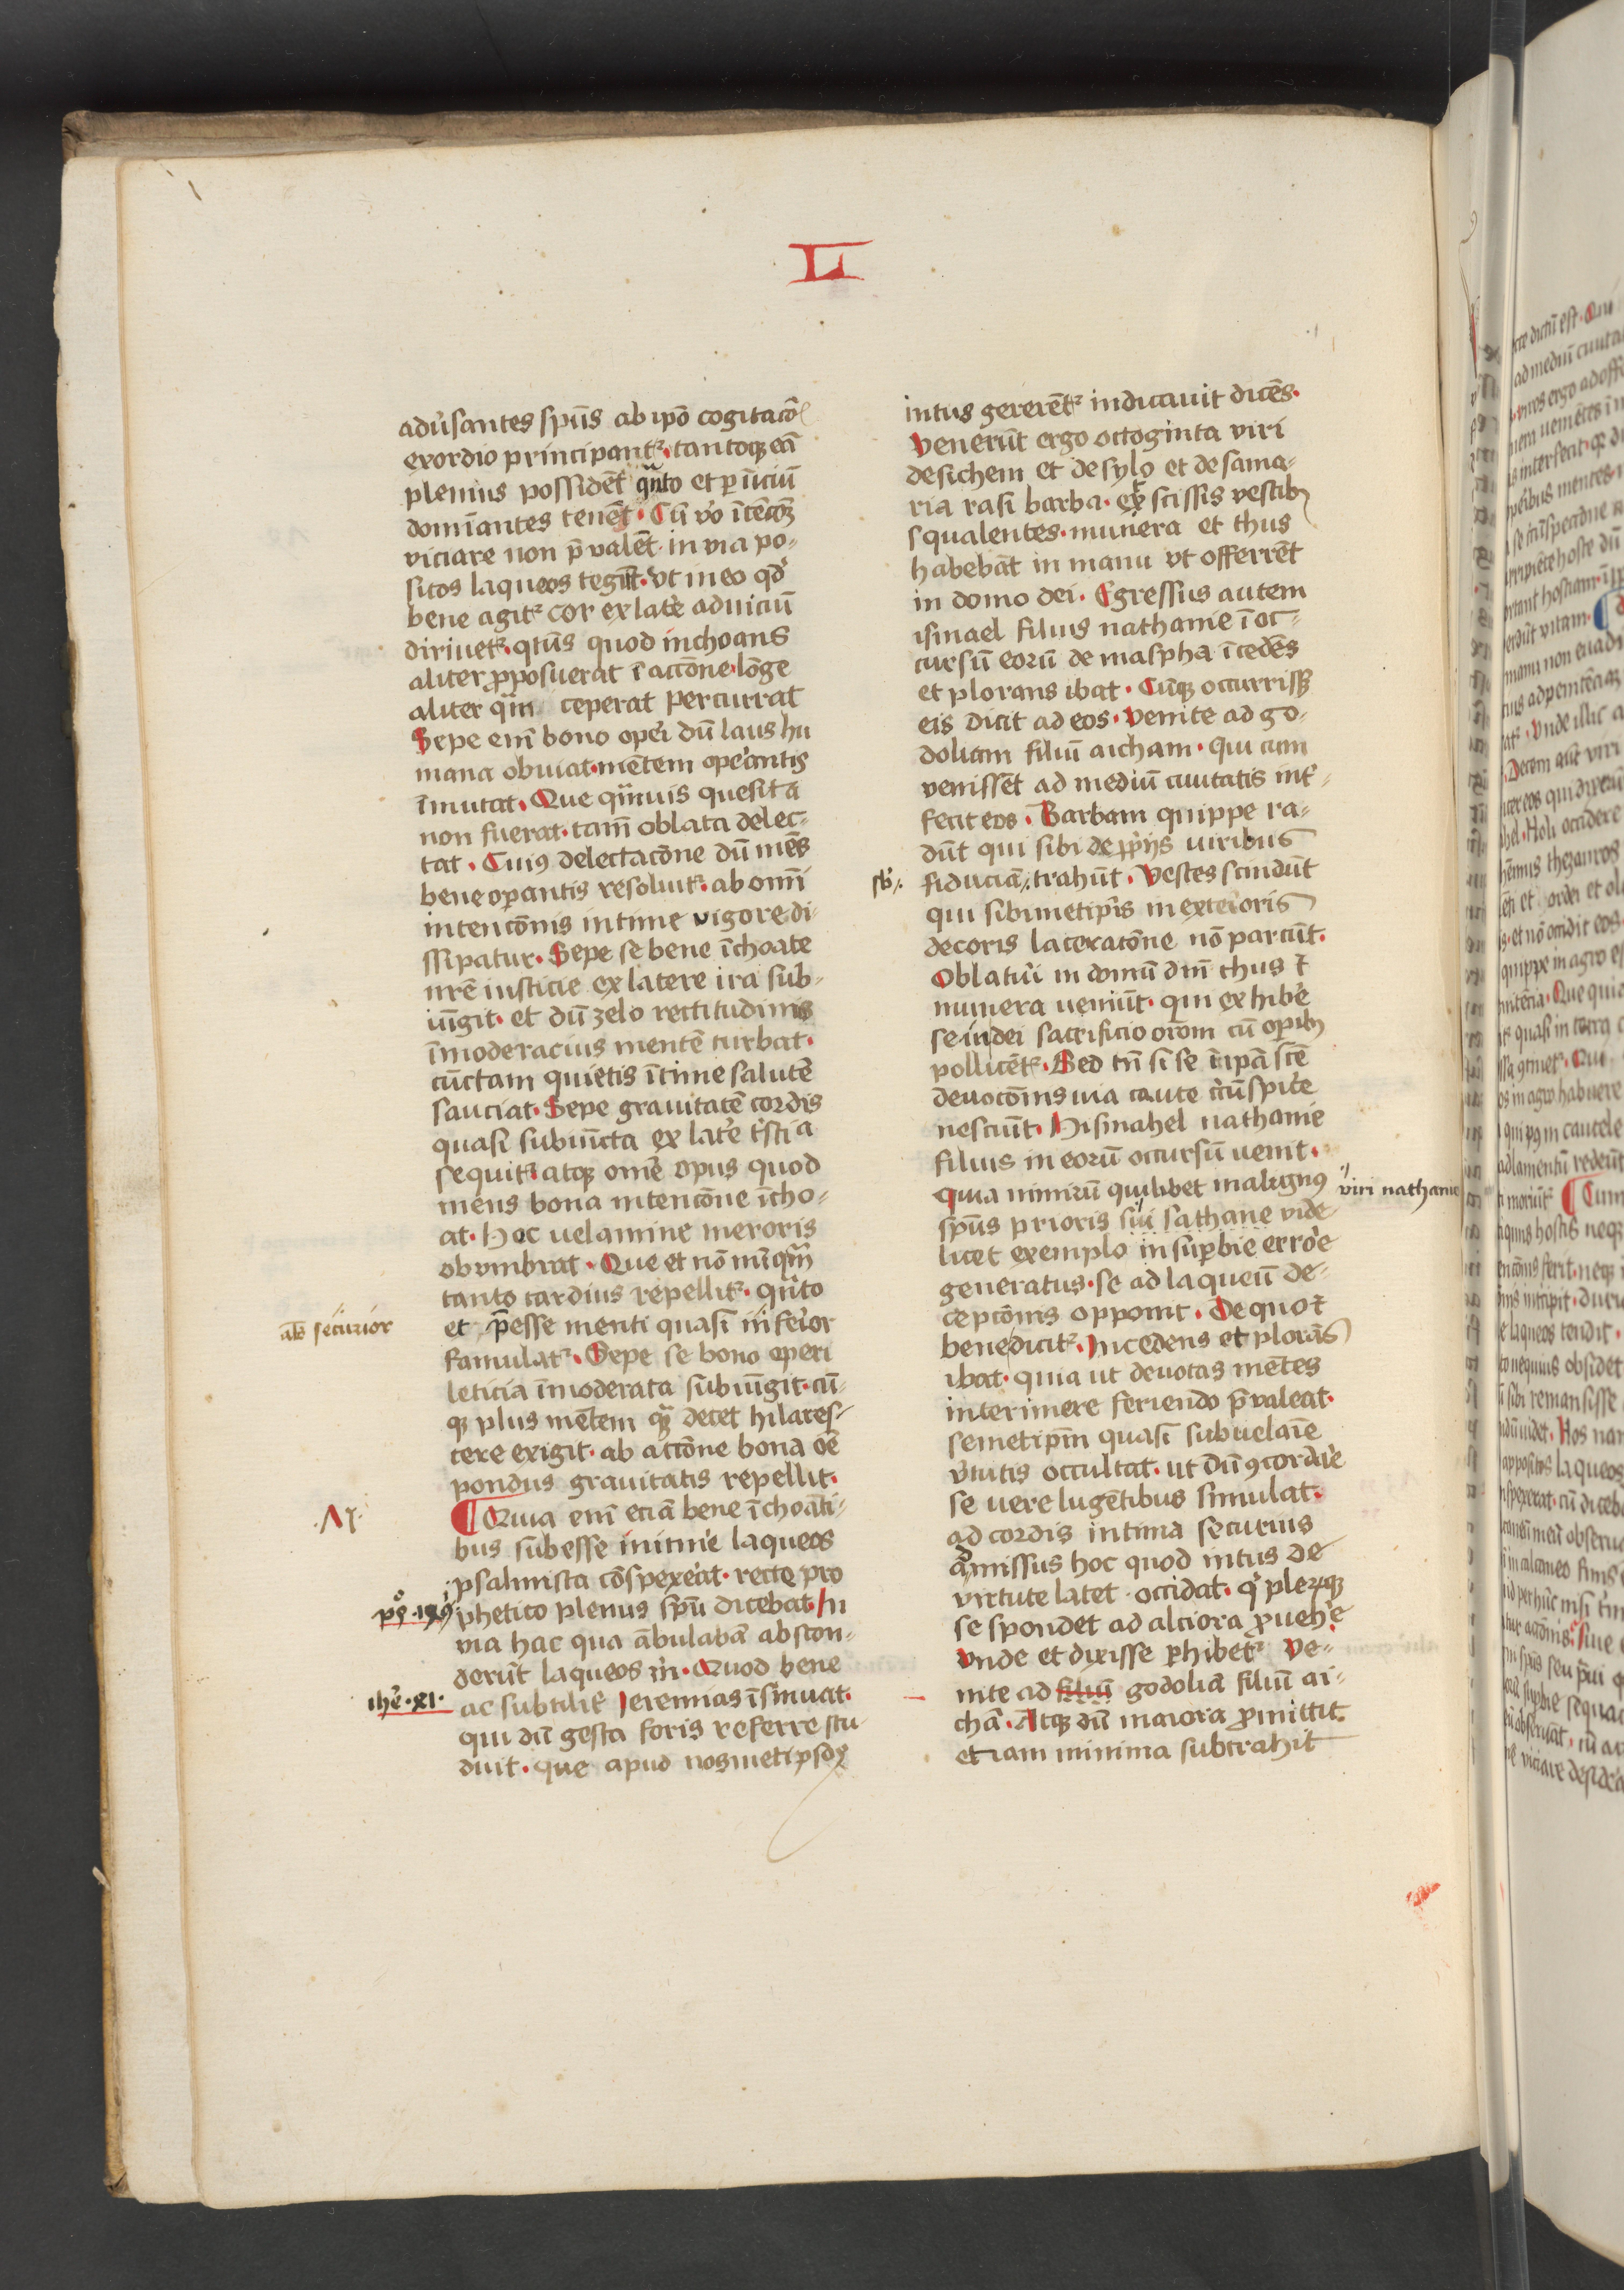 L
adu᷑santes sp̄us ab ip̄o cogitacō
exordio principantᷣ. tantoqꝫ eā
plenius possidēt qn̄to et ꝑ iniciū
domīantes tenēt. Cū vo᷑
viciare non p̄valēt. in via po-
sitos laqueos tegūt. vt in eo qđ
bene agitᷣ cor ex late᷑ ad viciū
diriuetᷣ. qt̄us quod inchoans
aliter ꝓposuerat ī accōne. lōge
aliter qm̄ ceperat percurrat
Sepe enī bono ope᷑i dū laus hu
mana obuiat. mētem ope᷑antis
īmutat. Que qm̄uis quesita
non fuerat. tam̄ oblata delec-
tat. Cuiꝯ delectacōne dū mēs
bene oꝑantis resoluitᷣ. ab om̄i
intencōnis intime vigore di
ssipatur. Sepe se bene īchoate
nr̄e iusticie ex latere ira sub-
iūgit. et dū zelo rectitudinis
īmoderacius mentē turbat.
cūctam quietis ītime salutē
sauciat. Sepe grauitatē cordis
quasi subiūcta ex late᷑ t᷑sticia
sequitᷣ. atqꝫ omē opus quod
mens bona intencōne īcho-
at. hoc uelamine meroris
obvmbrat. Que et nō nūqm̄
tanto tardius repellitᷣ. qn̄to
als securior
et p̄esse menti quasi infe᷑ior
famulatᷣ. Sepe se bono operi
leticia īmoderata subiūgit. cū-
qꝫ plus mētem qꝫ decet hilares-
cere exigit. ab accōne bona oē
pondus grauitatis repellit.
¶ Quia enī eciā bene īchoāti-
bus subesse inime᷑ laqueos
psalmista cōspexe᷑at. recte pro
phetico plenus spū dicebat. In
via hac qua ābulabā abscon-
derūt laqueos m᷑. Quod bene
ihe᷑. xi.
ac subtilit᷑ Jeremias īsinuat.
qui dū gesta foris referre stu
duit. que apud nosmetipsos
intus gererētᷣ indicauit dicēs.
Venerūt ergo octoginta viri
de sichem et de sylo et de sama-
ria rasi barba. et scissis vestibꝫ
squalentes. munera et thus
habebāt in manu vt offerrēt
in domo dei. Egressus autem
ismael filius nathanie ī oc-
cursū eorū de maspha īcedēs
et plorans ibat. Cūqꝫ occurrissꝫ
eis dicit ad eos. Venite ad go-
doliam filiū aicham. qui cum
venissēt ad mediū ciuitatis int᷑-
fecit eos. Barbam quippe ra-
dūt qui sibi de ꝓprijs viribus
fiduciā trahūt. Vestes scindūt
qui sibimetip̄is in exterioris
decoris laceratōne nō parcūt.
Oblatu᷑i in domū dn̄i thus et
munera veniūt. qui exhibe᷑
se in dei sacrificio orōm cū oꝑibꝫ
pollicētᷣ. Sed tn̄ si se in ip̄a scē
deuocōnis via caute cr̄cūspice᷑
nesciūt. Hismahel nathanie
filius in eorū occursū uenit.
Quia nimirū quilibet malignꝯ
viri nathanie
sp̄us prioris sui sathane vide-
licet exemplo in suꝑbie erro᷑e
generatus. se ad laqueū de-
cepcōnis opponit. De quo et
bene dicitᷣ. Incedens et plorās
ibat. quia ut deuotas mētes
interimere feriendo p̄valeat.
semetip̄m quasi sub uelaīe
v᷑tutis occultat. ut dū ꝯcorda᷑e
se uere lugētibus simulat.
ad cordis intima securius
admissus hoc quod intus de
virtute latet occidat. qi pleꝝqꝫ
se spondet ad alciora ꝓuehe᷑.
Vnde et dixisse ꝑhibetᷣ Ve-
nite ad filiū godoliā filiū ai-
chā. Atqꝫ dū maiora ꝓmittit
etiam minima subtrahit